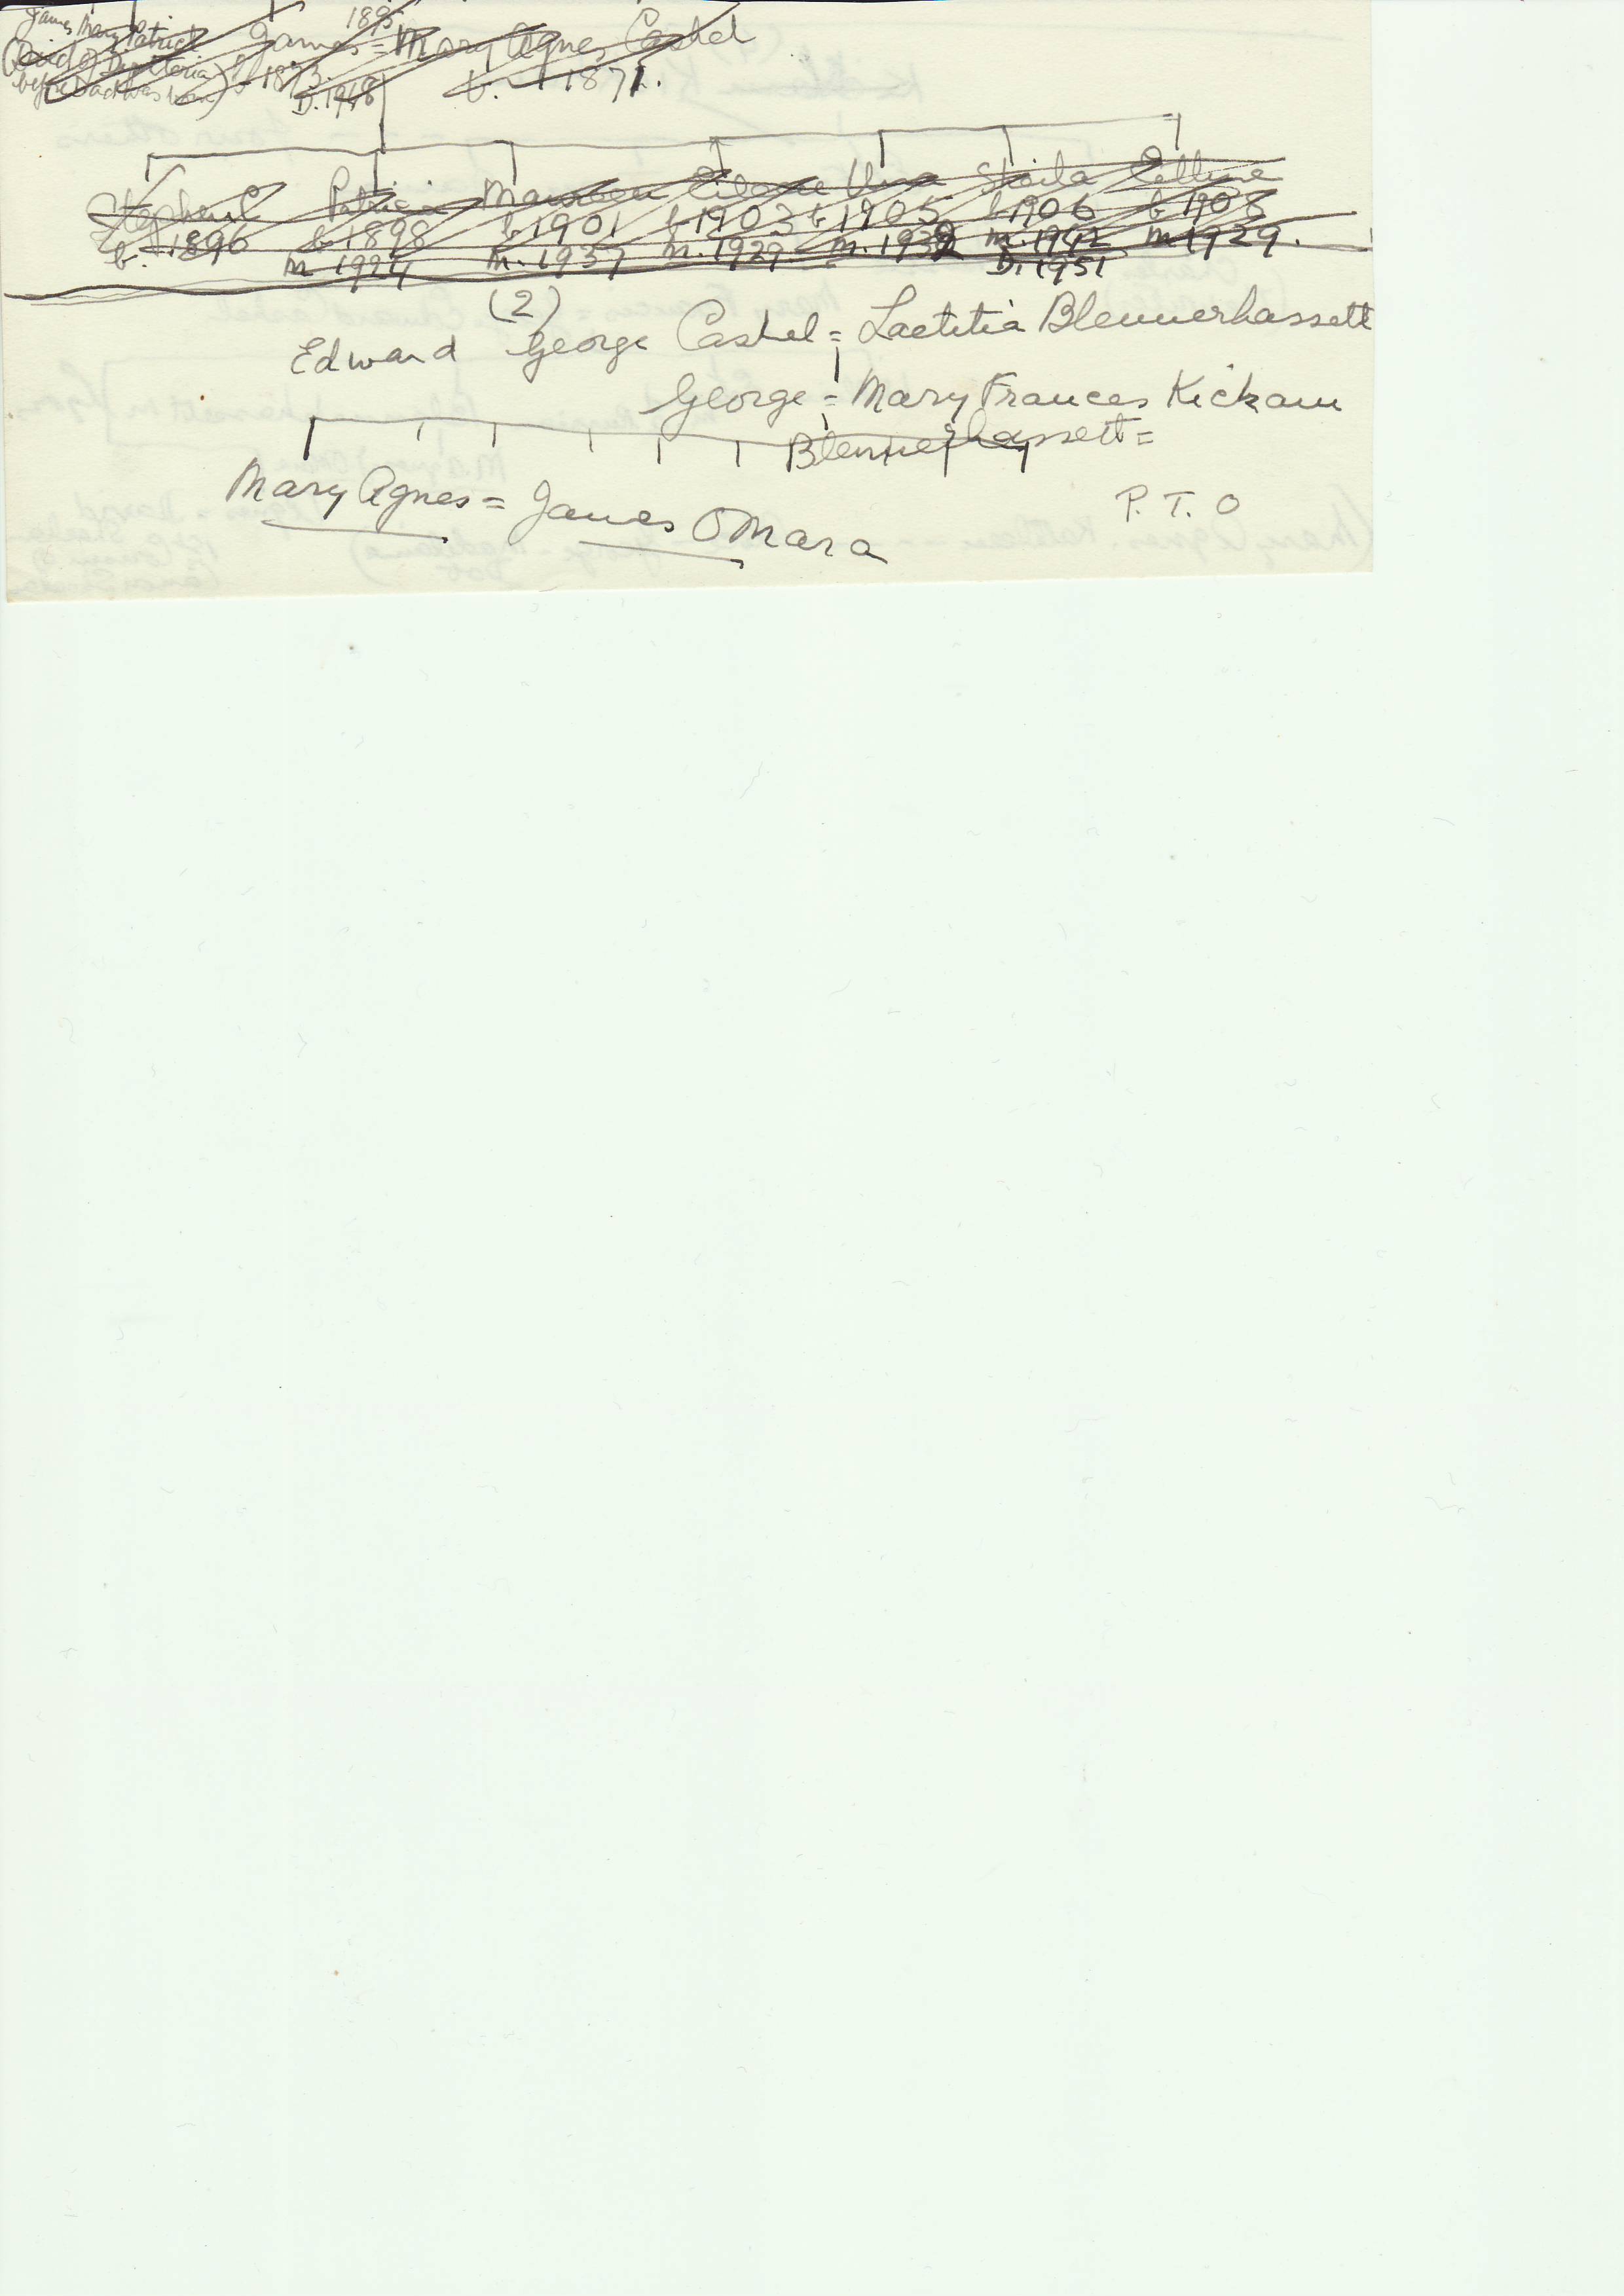 James Mary Patrick
(Died of Diptheria
before Dad was born)
1895
James = Mary Agnes Cashel
b. 1873 b. 1871.
D. 1948
Stephen Patricia Maureen Eileen Una Sheila
b. 1896 b 1898 b 1901 b 1903 b 1905 b 1906 b 1908
m 1924 m. 1937 m. 1929 m. 1932 m. 1942 m 1929.
D. 1951
(2)
Edward George Cashel = Laetitia Blennerhassett
George = Mary Frances Kickam
Blennerhassett =
Mary Agnes = James O'Mara
P. T. O